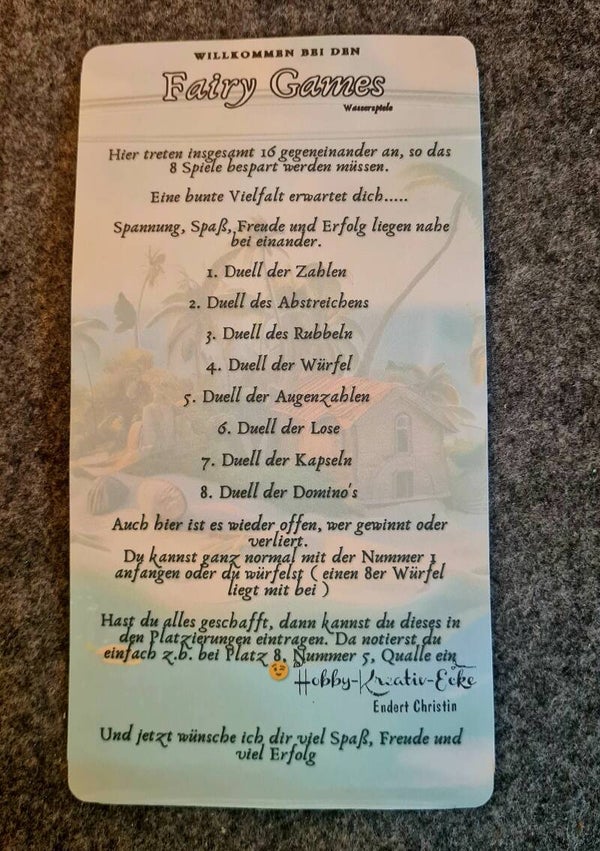 WILLKOMMEN BEI DEN
Fairy Games
Wasserspiele
Hier treten insgesamt 16 gegeneinander an, so das
8 Spiele bespart werden müssen.
Eine bunte Vielfalt erwartet dich.....
Spannung, Spaß, Freude und Erfolg liegen nahe
bei einander.
1. Duell der Zahlen
2. Duell des Abstreichens
3. Duell des Rubbeln
4. Duell der Würfel
5. Duell der Augenzahlen
6. Duell der Lose
7. Duell der Kapseln
8. Duell der Domino's
Auch hier ist es wieder offen, wer gewinnt oder
verliert.
Du kannst ganz normal mit der Nummer 1
anfangen oder du würfelst ( einen 8er Würfel
liegt mit bei )
Hast du alles geschafft, dann kannst du dieses in
den Platzierungen eintragen. Da notierst du
einfach z.b. bei Platz 8, Nummer 5, Qualle ein
😉
Hobby-Kreativ-Ecke
Endert Christin
Und jetzt wünsche ich dir viel Spaß, Freude und
viel Erfolg